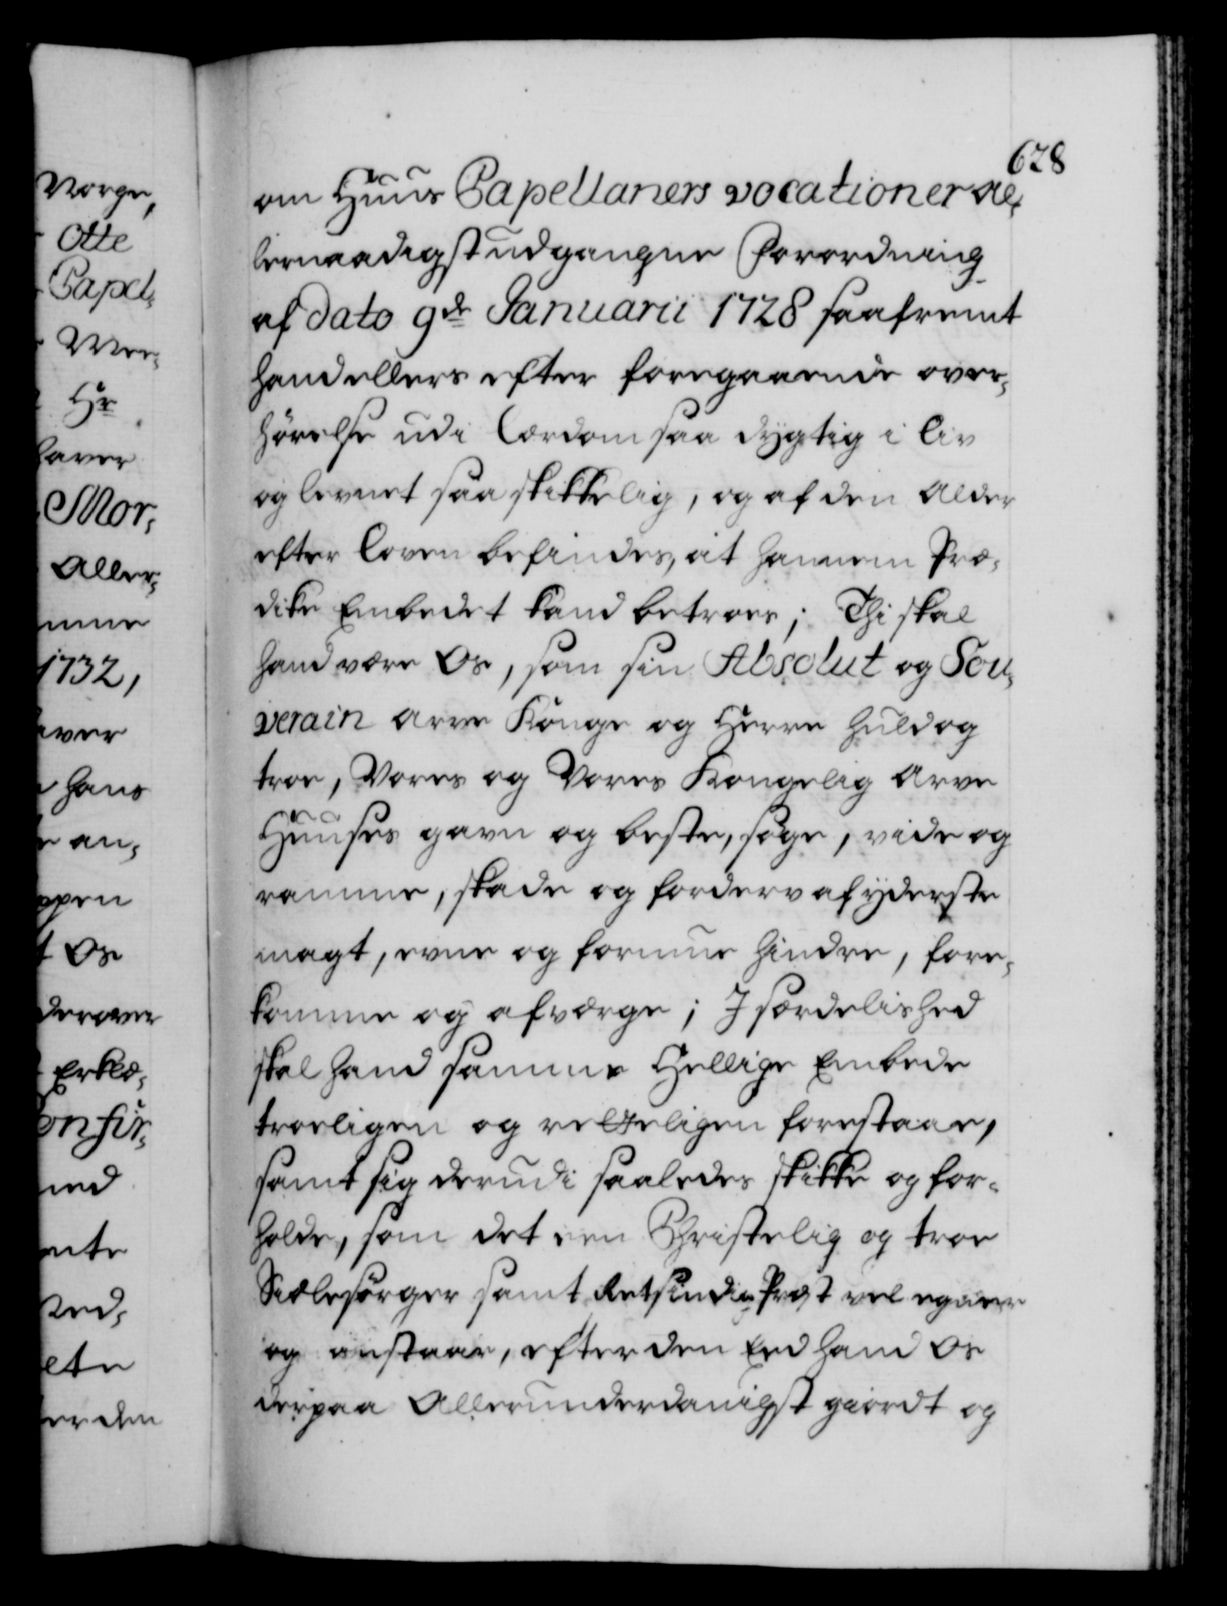 628
om Huus Capellaners vocationer al,
lernaadigst udgangne Forordning
af Dato 9de Januarii 1728 saafremt
hand ellers efter foregaaende over,
hörelse udi Lærdom saa dygtig i Liv
og levnet saa skikkelig, og af den Alder
efter Loven befindes, at hannem Præ,
dike Embedet kand betroes; Thi skal
hand være Os, som sin Absolut og Sou,
verain Arve Konge og Herre huld og
troe, Vores og Vores Kongelig Arve
Huuses gavn og beste, söge, vide og
ramme, skade og forderv af ÿderste
magt, evne og formue hindre, fore,
komme og afværge; I særdelished
skal hand samme Hellige Embede
troeligen og retteligen forestaae,
samt sig derudi saaledes skikke og for,
holde, som det een Christelig og troe
Siælesörger samt Retsindig Præst vel egner
og anstaar, efter den Eed hand Os
derpaa Allerunderdanigst giordt og
Norge,
Otte
Capel,
Hr
haver
Mor,
Aller,
1732,
hans
an,
Os
derover
Erklæ,
onfir,